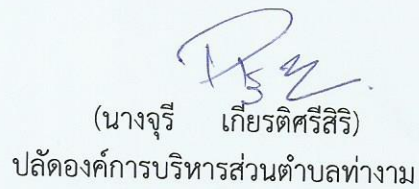 (นางจุรี เกียรติศรีสิริ)
ปลัดองค์การบริหารส่วนตำบลท่างาม